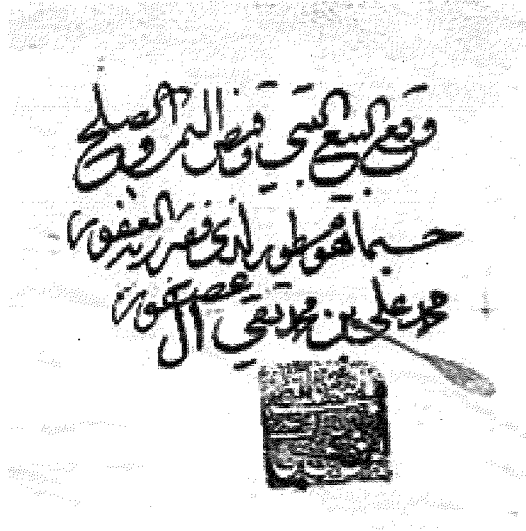 وقع البيع البتي وقبض الثمن والصلح
حسبما هو مسطور لدى فقير ربه الغفور
محمد علي بن محمد تقي آل عصفور